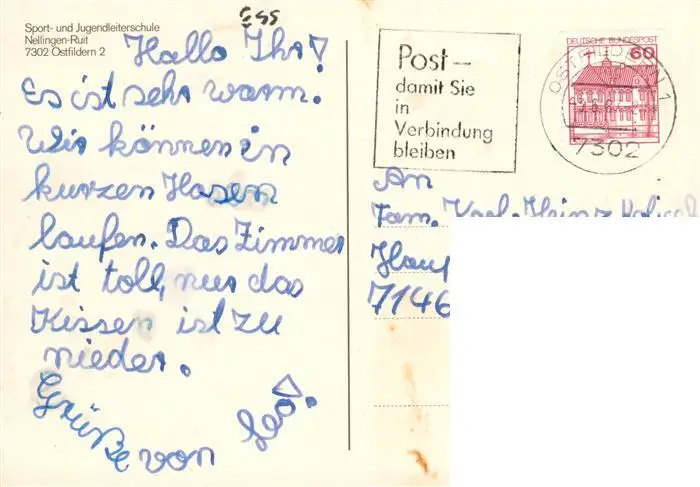 ESS
Sport- und Jugendleiterschule
Nellingen-Ruit
7302 Ostfildern 2
Hallo Ihr!
Es ist sehr warm.
Wir können in
kurzen Hosen
laufen. Das Zimmer
ist toll, nur das
Kissen ist zu
nieder.
Grüße von Leo.
Post –
damit Sie
in
Verbindung
bleiben
DEUTSCHE BUNDESPOST
60
OSTFILDERN 1
7302
An
Fam. Karl-Heinz
Haup
7146